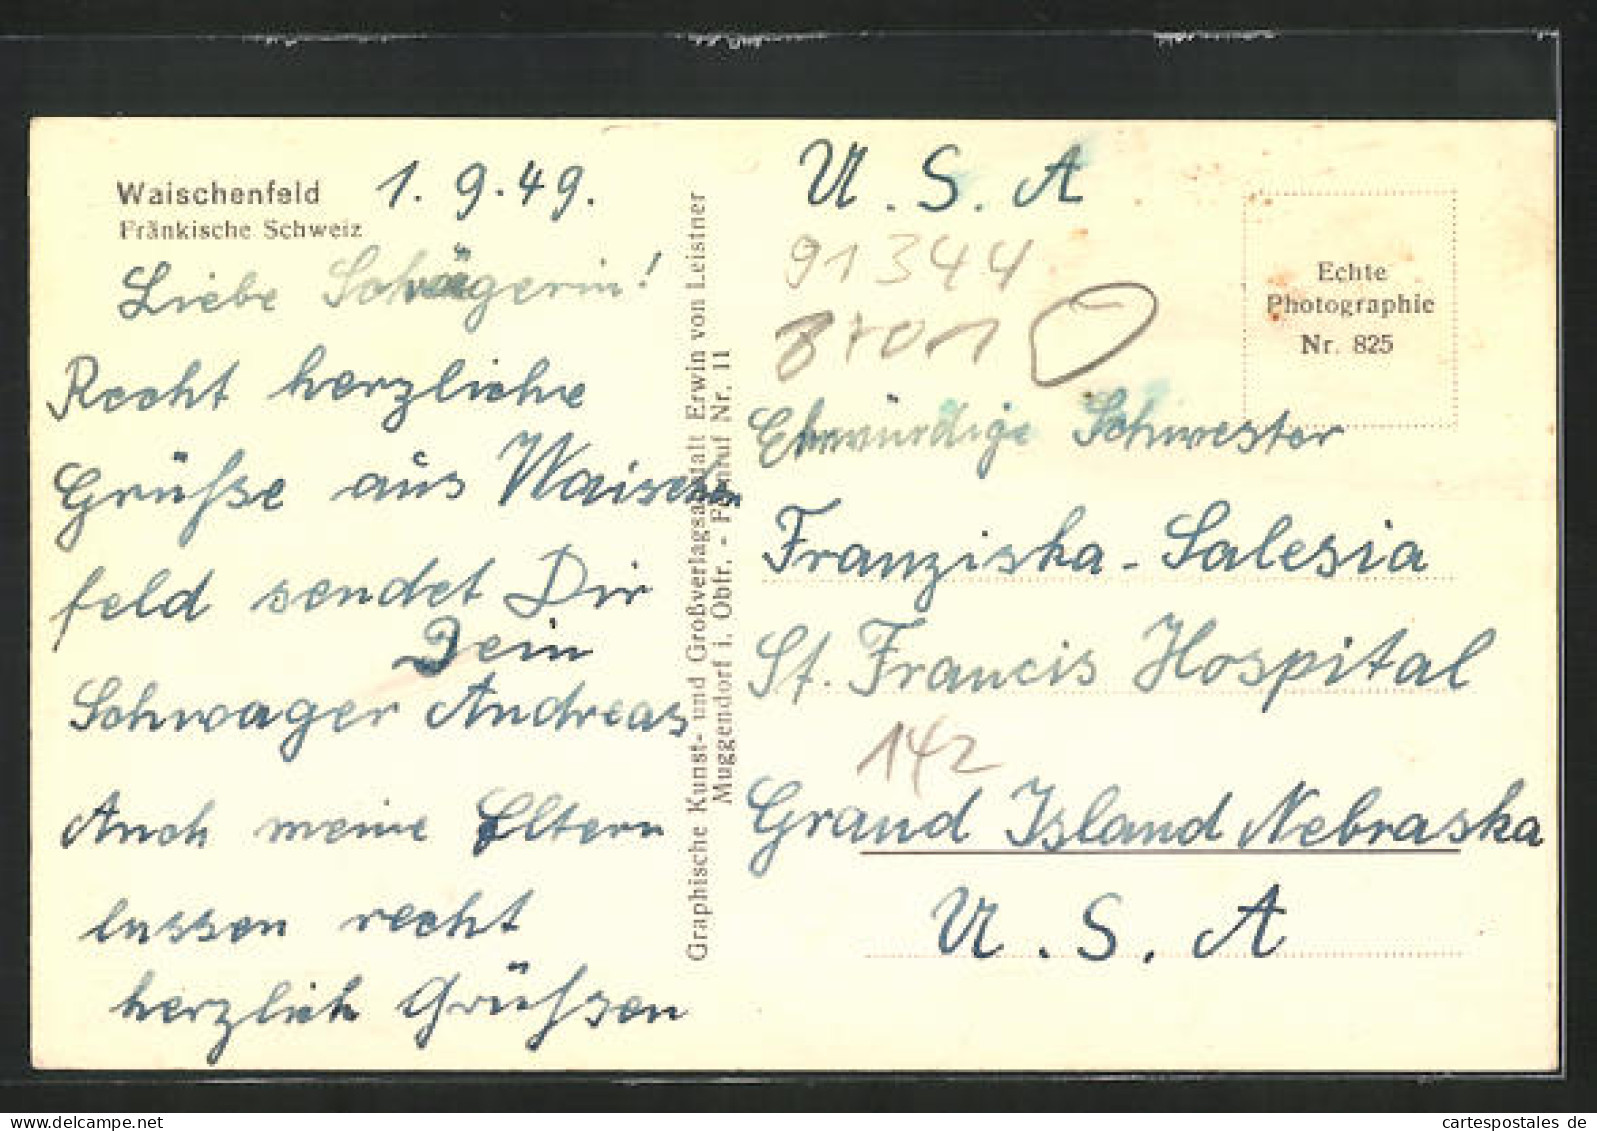 Waischenfeld
Fränkische Schweiz
1.9.49.
Liebe Schwägerin!
Recht herzliche
Grüße aus Waischen
feld sendet Dir
Dein
Schwager Andreas
Auch meine Eltern
lassen recht
herzlich Grüßen
Graphische Kunst- und Großverlagsanstalt Erwin von Leistner
Muggendorf i. Obfr. - Fernruf Nr. 11
U.S.A
91344
8701
Echte
Photographie
Nr. 825
Ehrwürdige Schwester
Franziska-Salesia
St. Francis Hospital
142
Grand Island Nebraska
U.S.A
cartespostales de